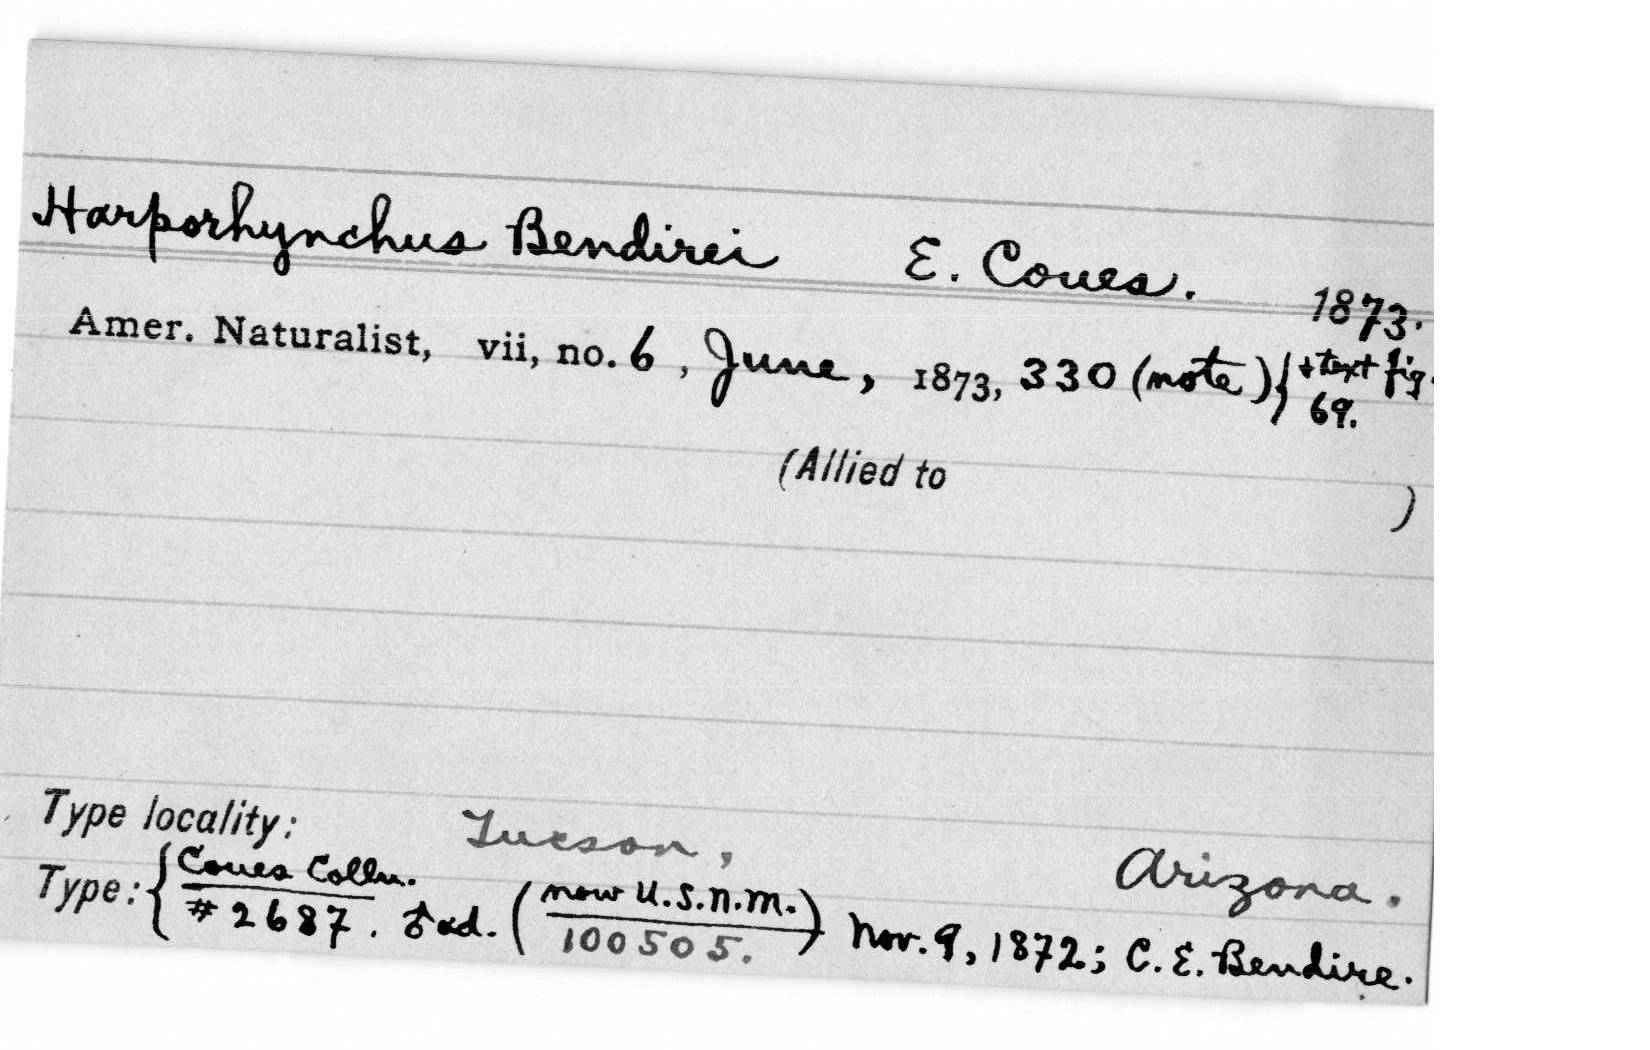 Harporhynchus Bendirei E. Coues. 1873.
Amer. Naturalist, vii, no. 6, June, 1873, 330 (note) { + text fig. 69.
(Allied to )
Type locality: Tucson, Arizona.
Type: { Coues Colln. # 2687. ♂ ad. (now U.S.N.M. 100505.) Nov. 9, 1872; C. E. Bendire.